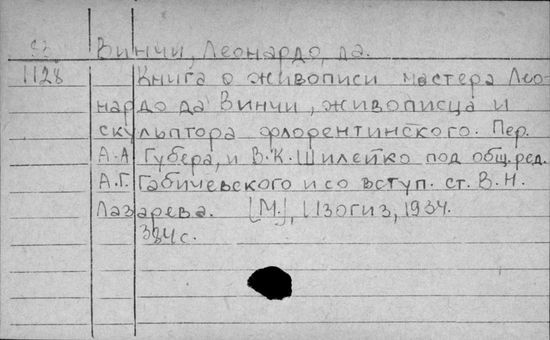 53 Винчи, Леонардо, да.
1128 Книга о живописи мастера Лео-
нардо да Винчи, живописца и
скульптора флорентинского. Пер.
А.А Губера, и В.К. Шилейко под общ. ред.
А.Г. Габичевского и со вступ. ст. В.Н.
Лазарева. [М.], Изогиз, 1934.
384 с.